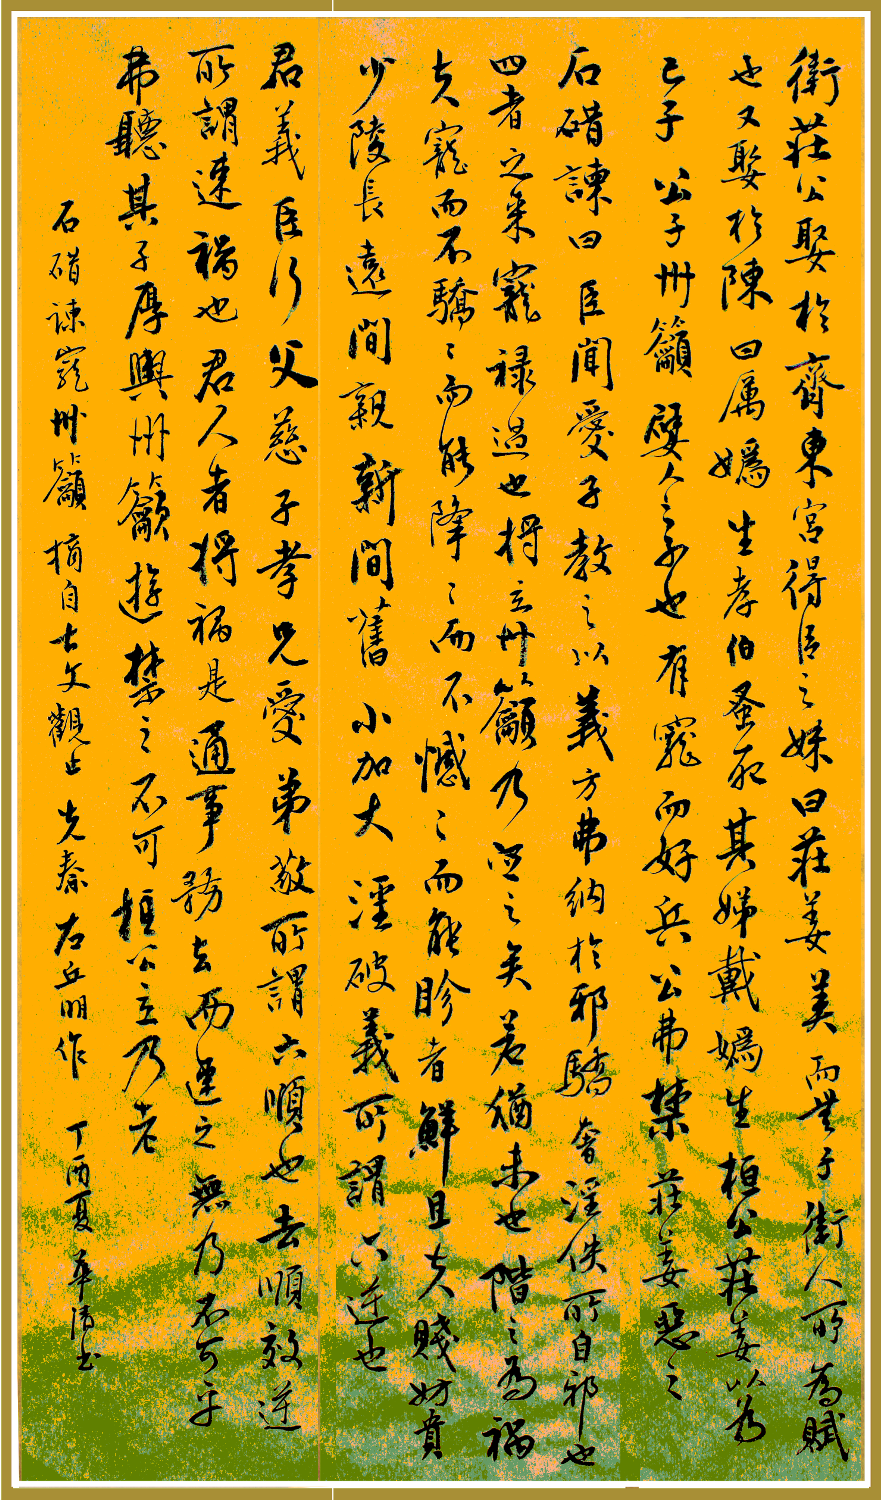 衛莊公娶於齊東宮得臣之妹曰莊姜美而無子衛人所為賦
也又娶於陳曰厲媯生孝伯蚤死其娣戴媯生桓公莊姜以為
己子公子州籲嬖人之子也有寵而好兵公弗禁莊姜惡之
石碏諫曰臣聞愛子教之以義方弗納於邪驕奢淫佚所自邪也
四者之來寵祿過也將立州籲乃定之矣若猶未也階之為禍
夫寵而不驕驕而能降降而不憾憾而能眕者鮮且夫賤妨貴
少陵長遠間親新間舊小加大淫破義所謂六逆也
君義臣行父慈子孝兄愛弟敬所謂六順也去順效逆
所謂速禍也君人者將禍是通事務去而速之無乃不可乎
弗聽其子厚與州籲遊禁之不可桓公立乃老
石碏諫寵州籲 摘自古文觀止 先秦 左丘明作 丁酉夏 華清书